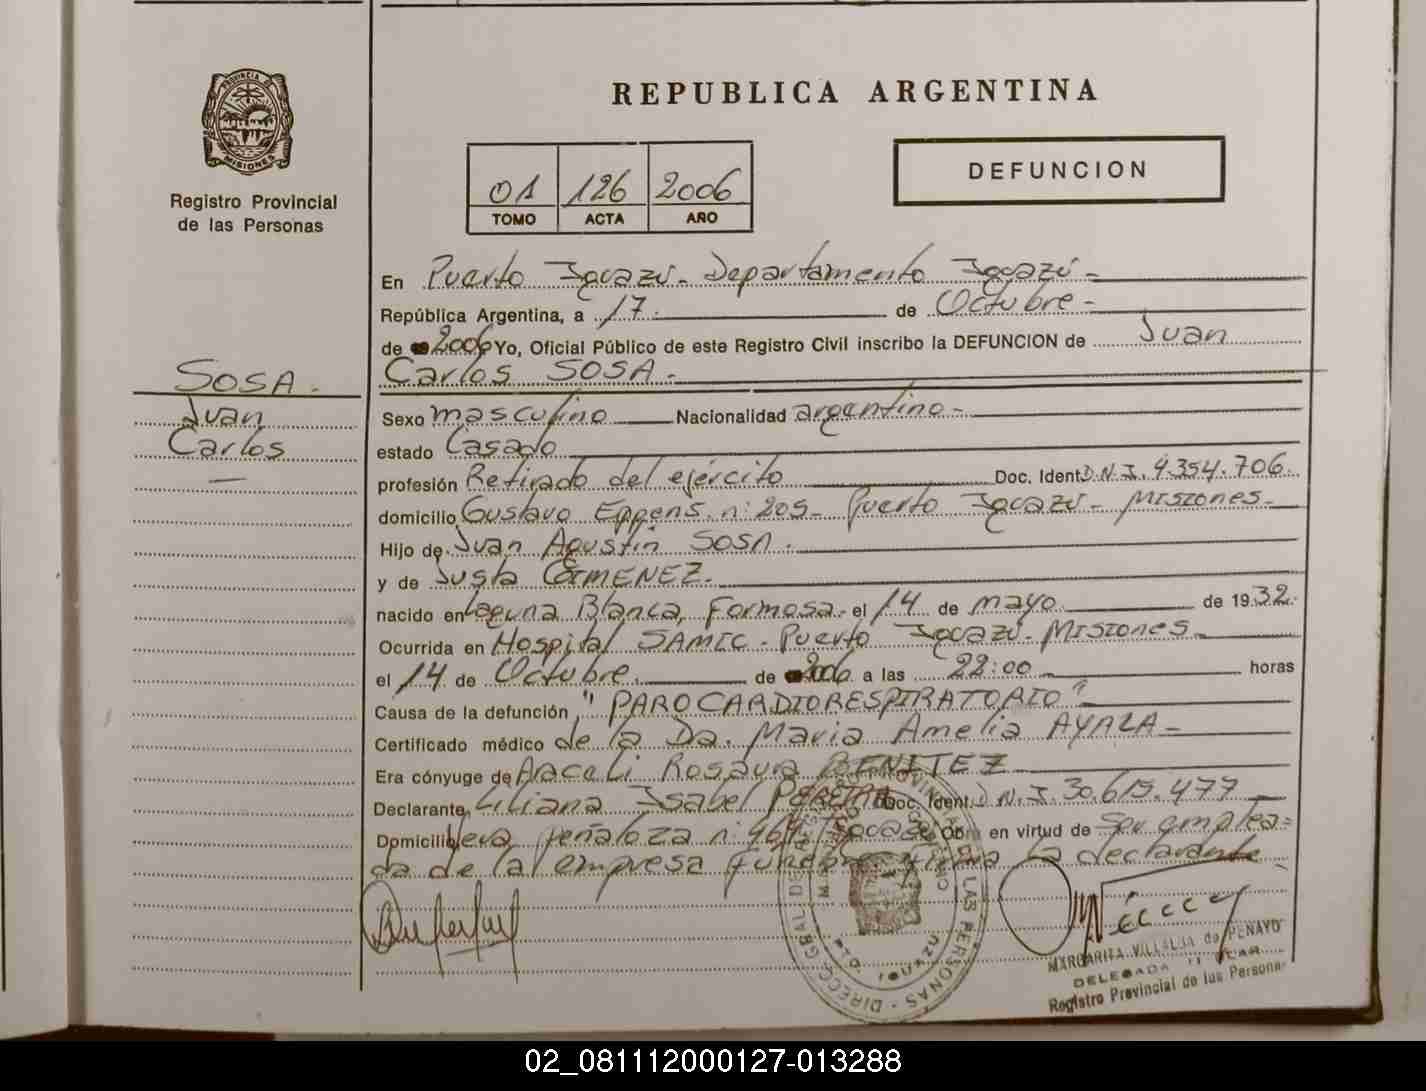 PROVINCIA DE
MISIONES
Registro Provincial
de las Personas
SOSA.
Juan
Carlos
REPUBLICA ARGENTINA
01 126 2006
TOMO ACTA AÑO
DEFUNCION
En Puerto Iguazú - Departamento Iguazú -
República Argentina, a 17. de Octubre -
de 2006 Yo, Oficial Público de este Registro Civil inscribo la DEFUNCION de Juan
Carlos SOSA.
Sexo masculino Nacionalidad argentino -
estado Casado
profesión Retirado del ejército Doc. Ident. D.N.I. 9.354.706.
domicilio Gustavo Eppens. n: 205 - Puerto Iguazú - MISIONES -
Hijo de Juan Agustín SOSA.
y de Justa
nacido en Laguna Blanca, Formosa. el 14 de mayo de 1932.
Ocurrida en Hospital SAMIC - Puerto Iguazú - MISIONES
el 14 de Octubre. de 2006 a las 22:00 horas
Causa de la defunción "PAROCARDIORESPIRATORIO"
Certificado médico de la Da. Maria Amelia AYALA -
Era cónyuge de Araceli Rosaura BENITEZ
Declarante Liliana Isabel PEREIRA Doc. Ident. D.N.I. 30.615.477
Domicilio peñaloza n: 469 en virtud de Ser emplea=
da de la empresa firma la declarante
DIRECC. GRAL. DE LAS PERSONAS
PTO. IGUAZU
MARGARITA VILLALBA de PENAYO
DELEGADA
Registro Provincial de las Personas
02_081112000127-013288